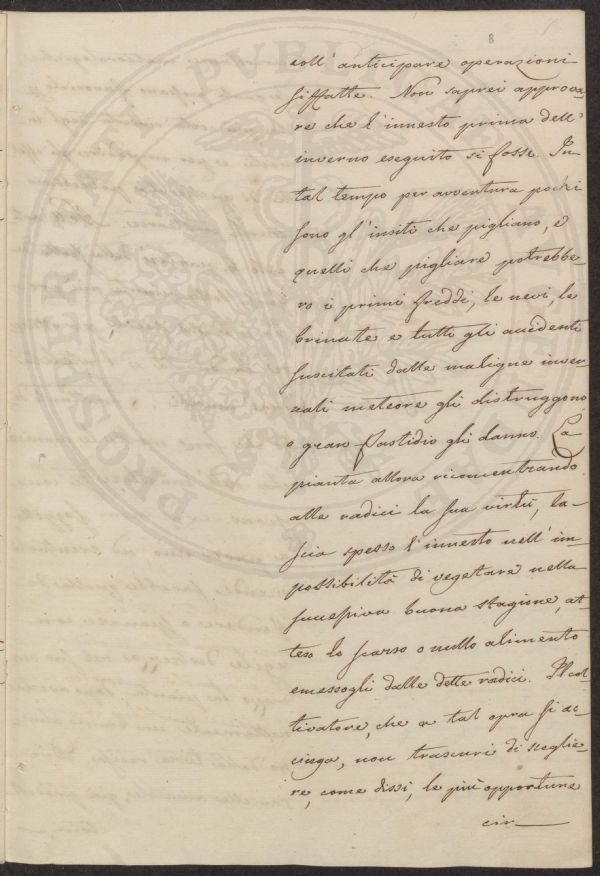 8
coll' anticipare operazioni
siffatte. Non saprei approva-
re che l'innesto prima dell'
inverno eseguito si fosse. In
tal tempo per avventura pochi
sono gl'insiti che pigliano, e
quelli che pigliare potrebbe-
ro i primi freddi, le nevi, le
brinate e tutti gli accidenti
suscitati dalle maligne inver-
nali meteore gli distruggono
o gran fastidio gli danno. La
pianta allora riconcentrando
alle radici la sua virtù, la-
scia spesso l'innesto nell'im-
possibilità di vegetare nella
successiva buona stagione, at-
teso lo scarso o nullo alimento
emessogli dalle dette radici. Il col-
tivatore, che a tal opra si ac-
cinga, non trascuri di sceglie-
re, come dissi, le più opportune
cir
PROSPER PUBLI